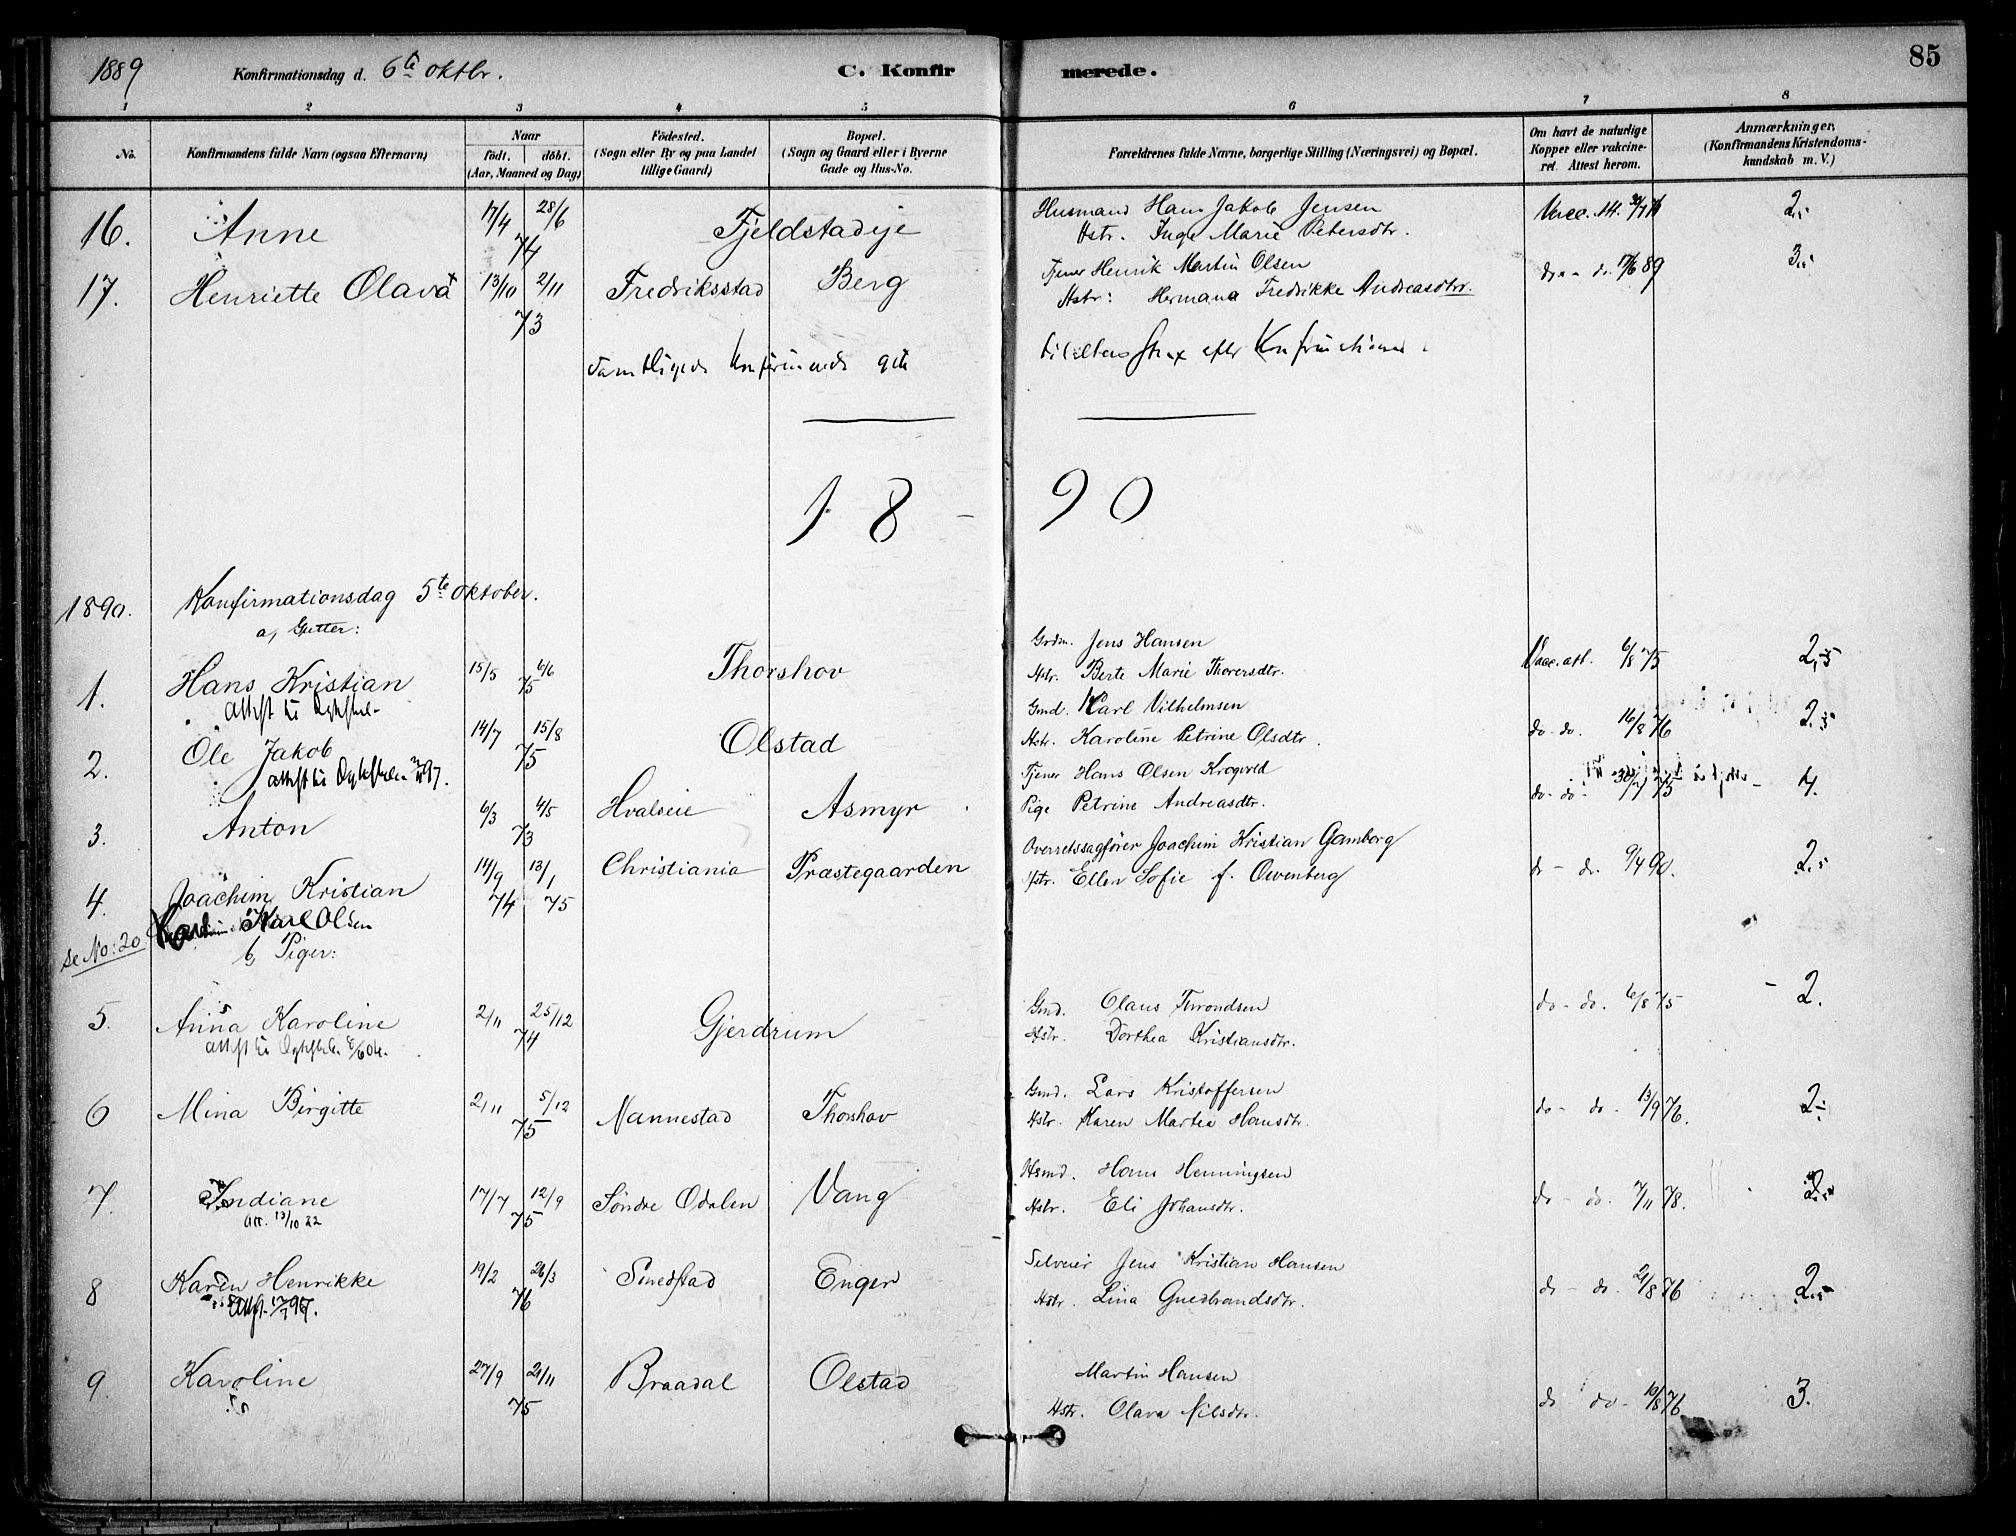 1889 Konfirmationsdag d. 6te oktbr. C. Konfirmerede. 85
1 2 3 4 5 6 7 8
No. Konfirmandens fulde Navn (ogsaa Efternavn) Naar födt. döbt. (Aar, Maaned og Dag) Födested. (Sogn eller By og paa Landet tillige Gaard) Bopæl. (Sogn og Gaard eller i Byerne Gade og Hus-No. Forældrenes fulde Navne, borgerlige Stilling (Næringsvei) og Bopæl. Om havt de naturlige Kopper eller vakcineret. Attest herom. Anmærkninger. (Konfirmandens Kristendomskundskab m. V.)
16. Anne 17/4 28/6 74 Fjeldstadeje Husmand Hans Jakob Jensen Vacc. 2
Hstr. Inge Marie Petersdtr.
17. Henriette Olava 13/10 2/11 73 Fredriksstad Berg Tjener Henrik Martin Olsen do - do. 17/6 89 3
Hstr: Hermana Fredrikke Andreasdtr.
Samtligede Konfirmerede gik til alters strax efter Konfirmationen.
18 - 90
1890. Konfirmationsdag 5te oktober.
a, Gutter:
1. Hans Kristian 15/5 6/6 75 Thorshov Grdm. Jens Hansen Vacc. att. 6/8 75 2,5
Hstr. Berte Marie Thorersdtr.
2. Ole Jakob 14/7 15/8 75 Olstad Gmd. Karl Vilhelmsen do. do. 16/8 76 2.5
Hstr. Karoline Petrine Olsdtr.
3. Anton 6/3 4/5 73 Hvalseie Asmyr Tjener Hans Olsen Krogvold do - do - 30/7 75 4.
Pige Petrine Andreasdtr.
4. Joachim Kristian 14/9 74 13/1 75 Christiania Præstegaarden Overretssagfører Joachim Kristian Gamborg do - do. 9/4 90. 2
Hstr. Ellen Sofie f. Owenberg
se No: 20 Karl Olsen
b, Piger:
5. Anna Karoline 2/11 25/12 74 Gjerdrum Gmd. Olaus Throndsen do - do. 6/8 75 2.
Hstr. Dorthea Kristiansdtr.
6 Mina Birgitte 2/11 5/12 75 Nannestad Thorshov Gmd. Lars Kristoffersen do - do. 13/9 76. 2
Hstr. Karen Martea Hansdtr.
7. Indiane 17/7 12/9 75 Søndre Odalen Vang Hsmd. Hans Henningsen do - do. 7/11 78. 2
Att. 13/10 22 Hstr. Eli Johansdtr.
8 Karen Henrikke 19/2 26/3 76 Smedstad Enger Selveier Jens Kristian Hansen do - do. 21/8 76 2
Hstr. Lina Gudbrandsdtr.
9. Karoline 27/9 21/11 75 Braadal Olstad Martin Hansen do do - 10/8 76 3.
Hstr. Olava Nilsdtr.